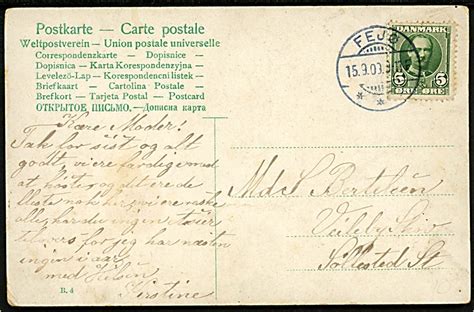 Postkarte – Carte postale
Weltpostverein – Union postale universelle
Correspondenzkarte – Dopisnice
Dopisnica – Karta Korespondenzyjna
Levelező-Lap – Korespondencni listek
Briefkaart – Cartolina Postale
Brefkort – Tarjeta Postal – Postcard
ОТКРЫТОЕ ПИСЬМО. – Дописна карта
FEJØ
15.9.09.
DANMARK
5 5
ØRE ØRE
Kære Moder!
Tak for sist og alt
godt, vi ere færdige med
at høste og alt
ingen
for jeg har næsten
ingen i aar
med Hilsen
Kirstine
Bertelsen
Vedby
Søllested St
B. 4